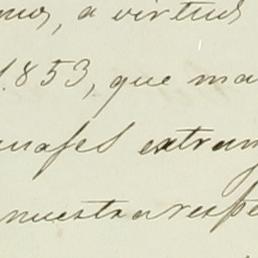 a virtud
1.853, que ma
extran
nuestra respe